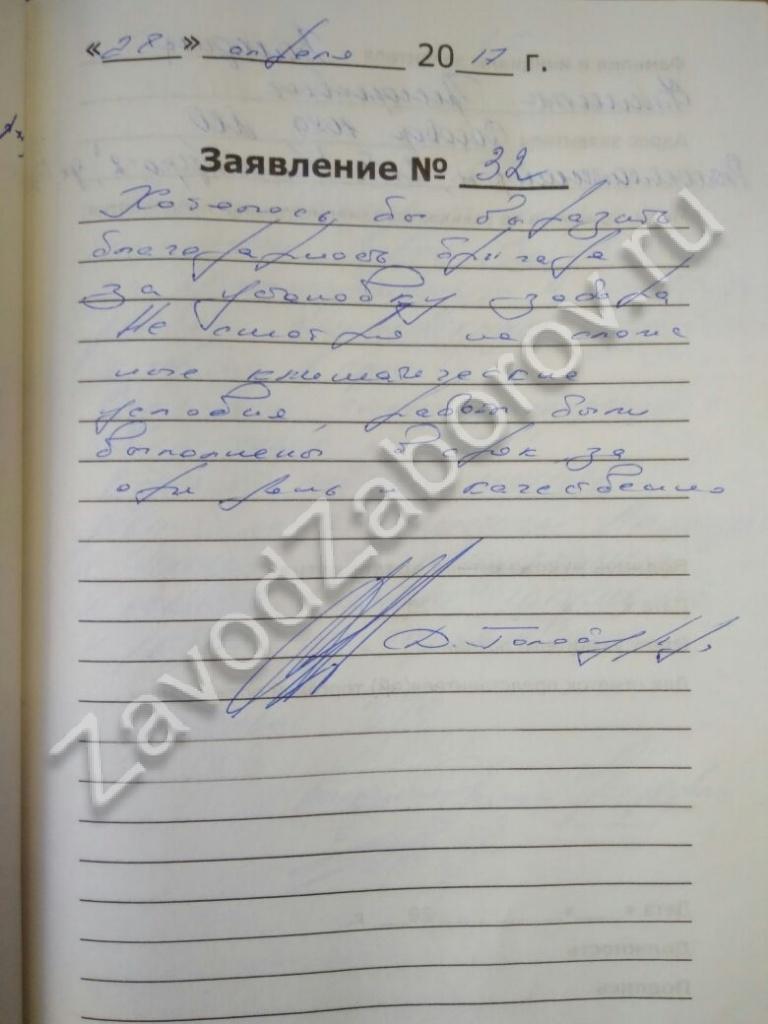 «28» апреля 2017 г.
Заявление № 32
Хотелось бы выразить
благодарность бригаде
за установку забора
Не смотря на слож
ные климатические
условия, работы были
выполнены в срок за
один день и качественно
Д.
ZavodZaborov.ru